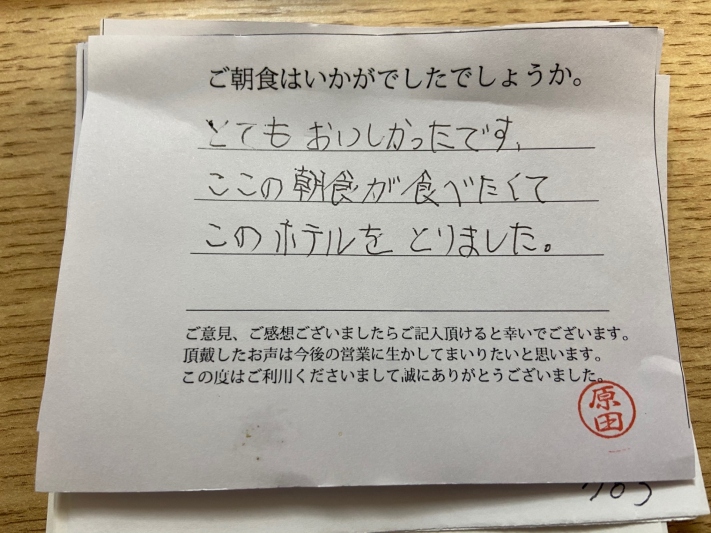 ご朝食はいかがでしたでしょうか。
とてもおいしかったです、
ここの朝食が食べたくて
このホテルをとりました。
ご意見、ご感想ございましたらご記入頂けると幸いでございます。
頂戴したお声は今後の営業に生かしてまいりたいと思います。
この度はご利用くださいまして誠にありがとうございました。
原田